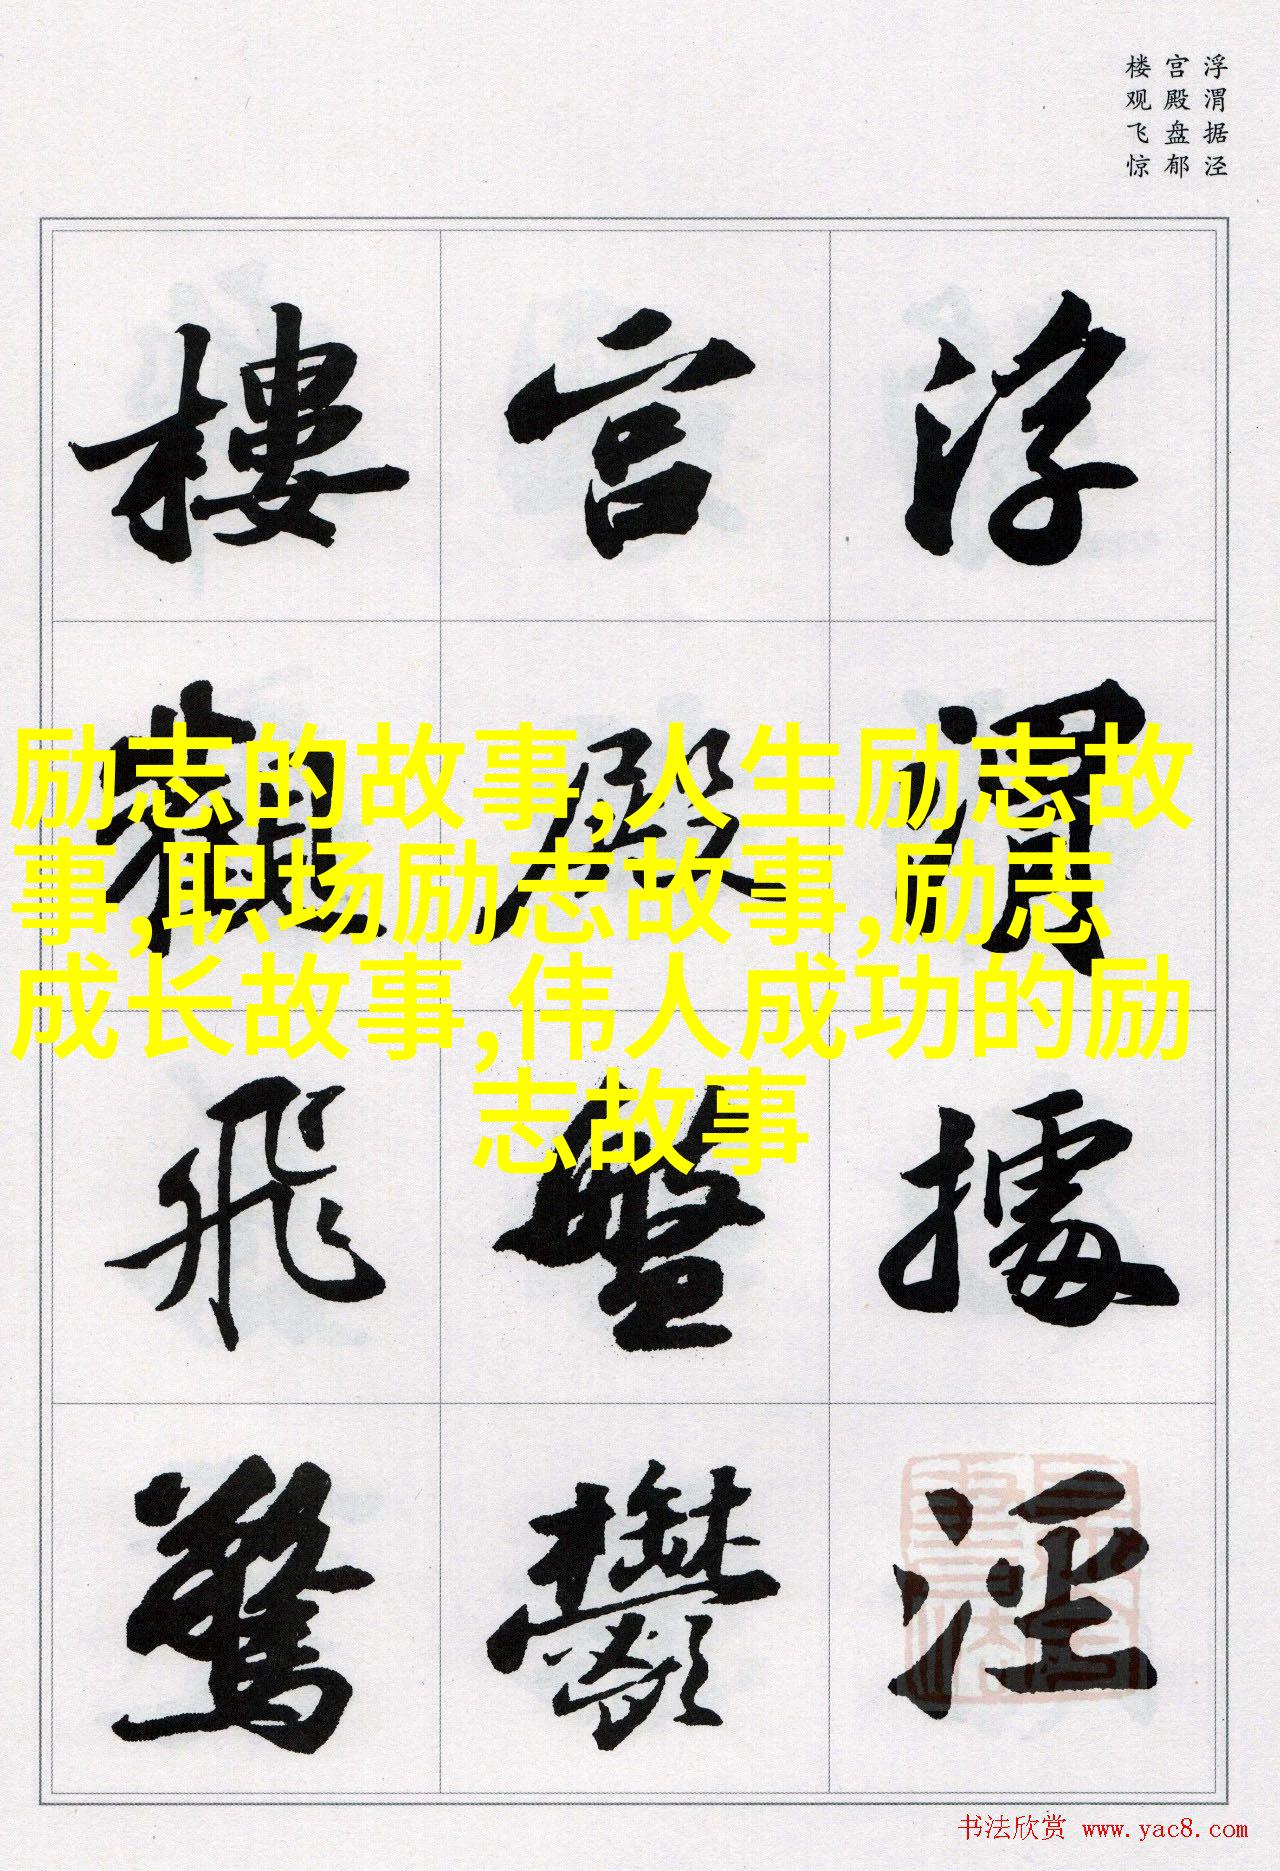 浮渭据泾
宫殿盘郁
楼观飞惊
浮渭據涇
宫殿盤鬱
樓觀飛驚
励志的故事,人生励志故
事,职场励志故事,励志
成长故事,伟人成功的励
志故事
书法欣赏 www.yac8.com